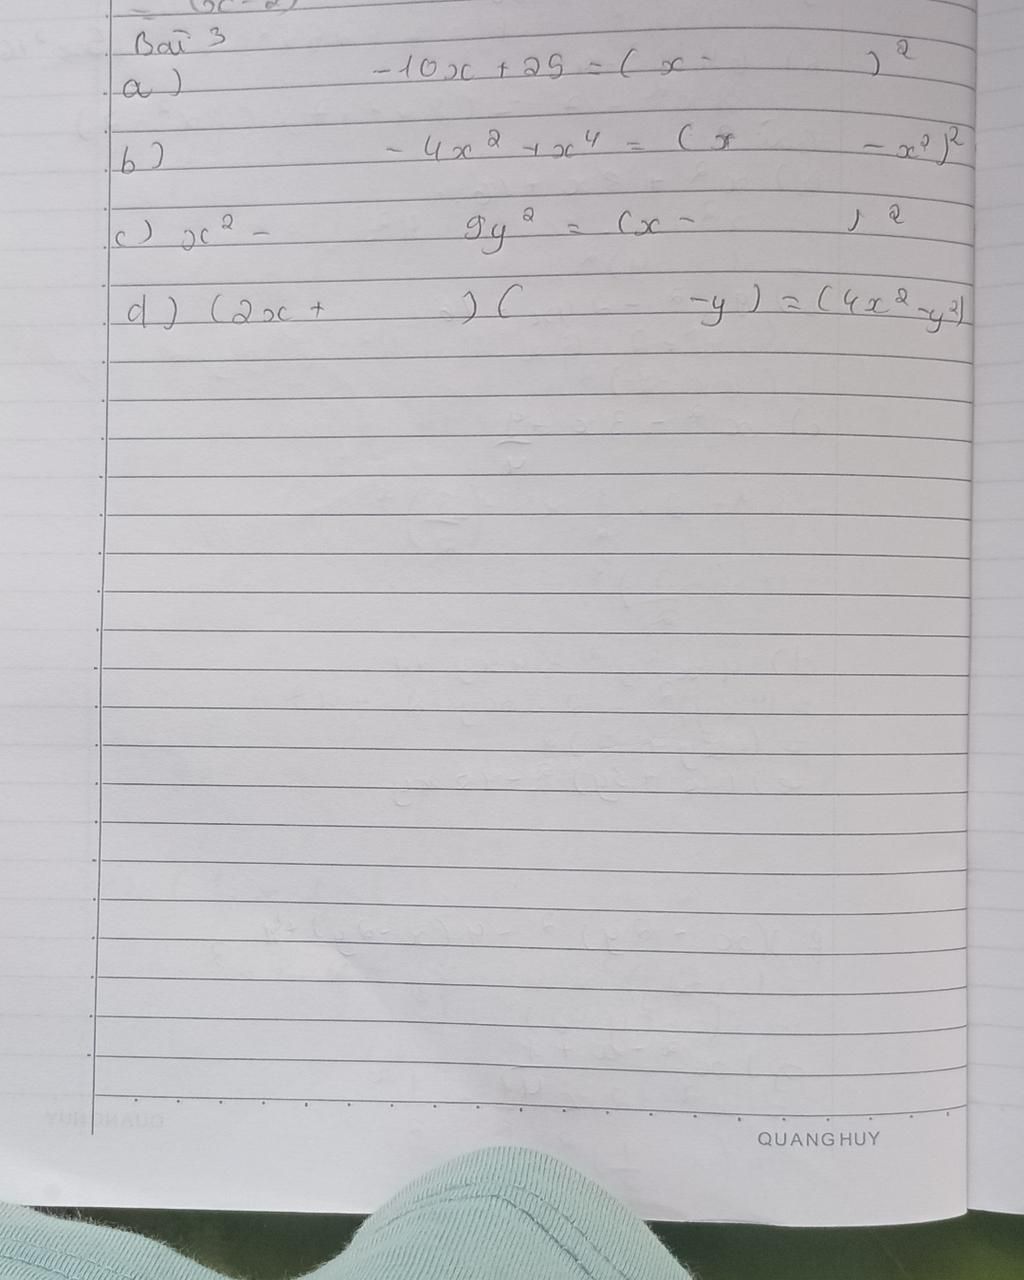 Bài 3
a) -10x + 25 = (x - )²
b) - 4x² + x⁴ = (x - x²)²
c) x² - 9y² = (x - )²
d) (2x + ) ( -y) = (4x² - y²)
QUANG HUY